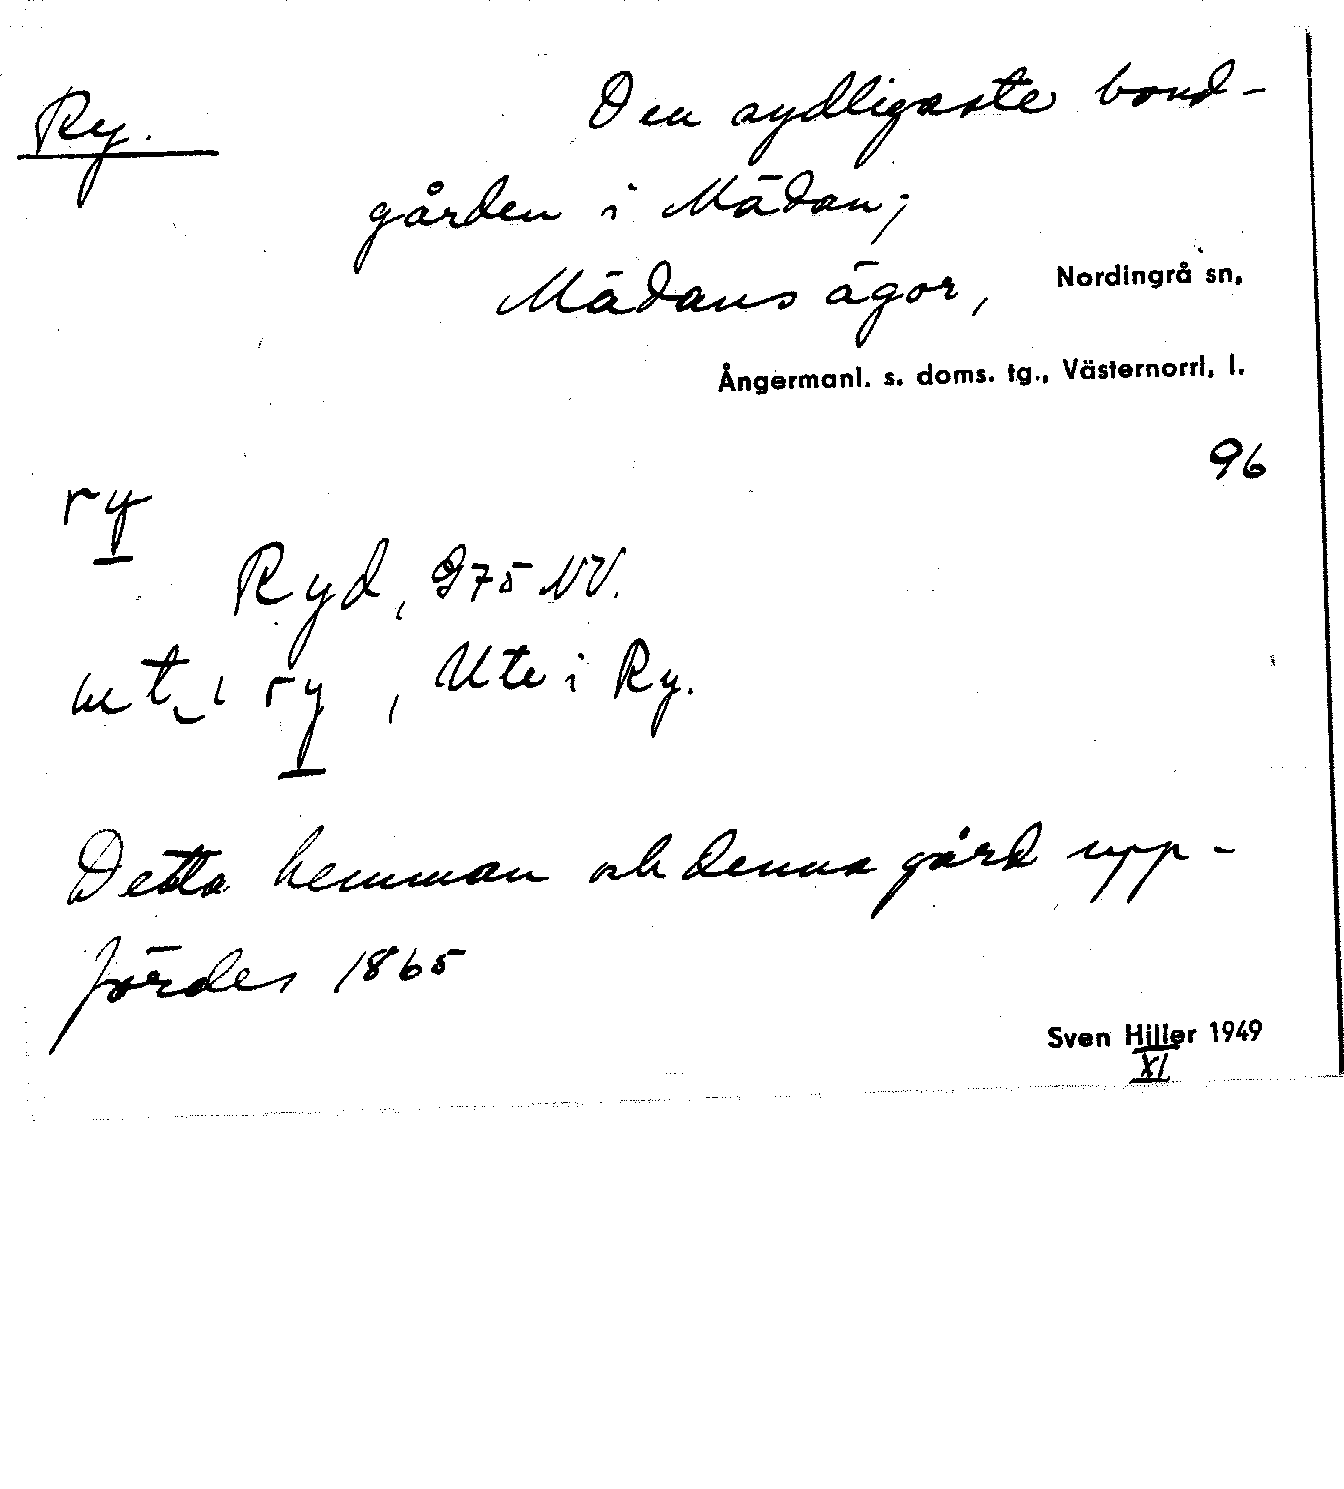 Ry. Den sydligaste bond-
gården i Mädan;
Mädans ägor, Nordingrå sn,
Ångermanl. s. doms. tg., Västernorrl. l.
96
ry
Ryd, 975 NV.
ut i ry, Ute i Ry.
Detta hemman och denna gård upp-
fördes 1865
Sven Hiller 1949
XI